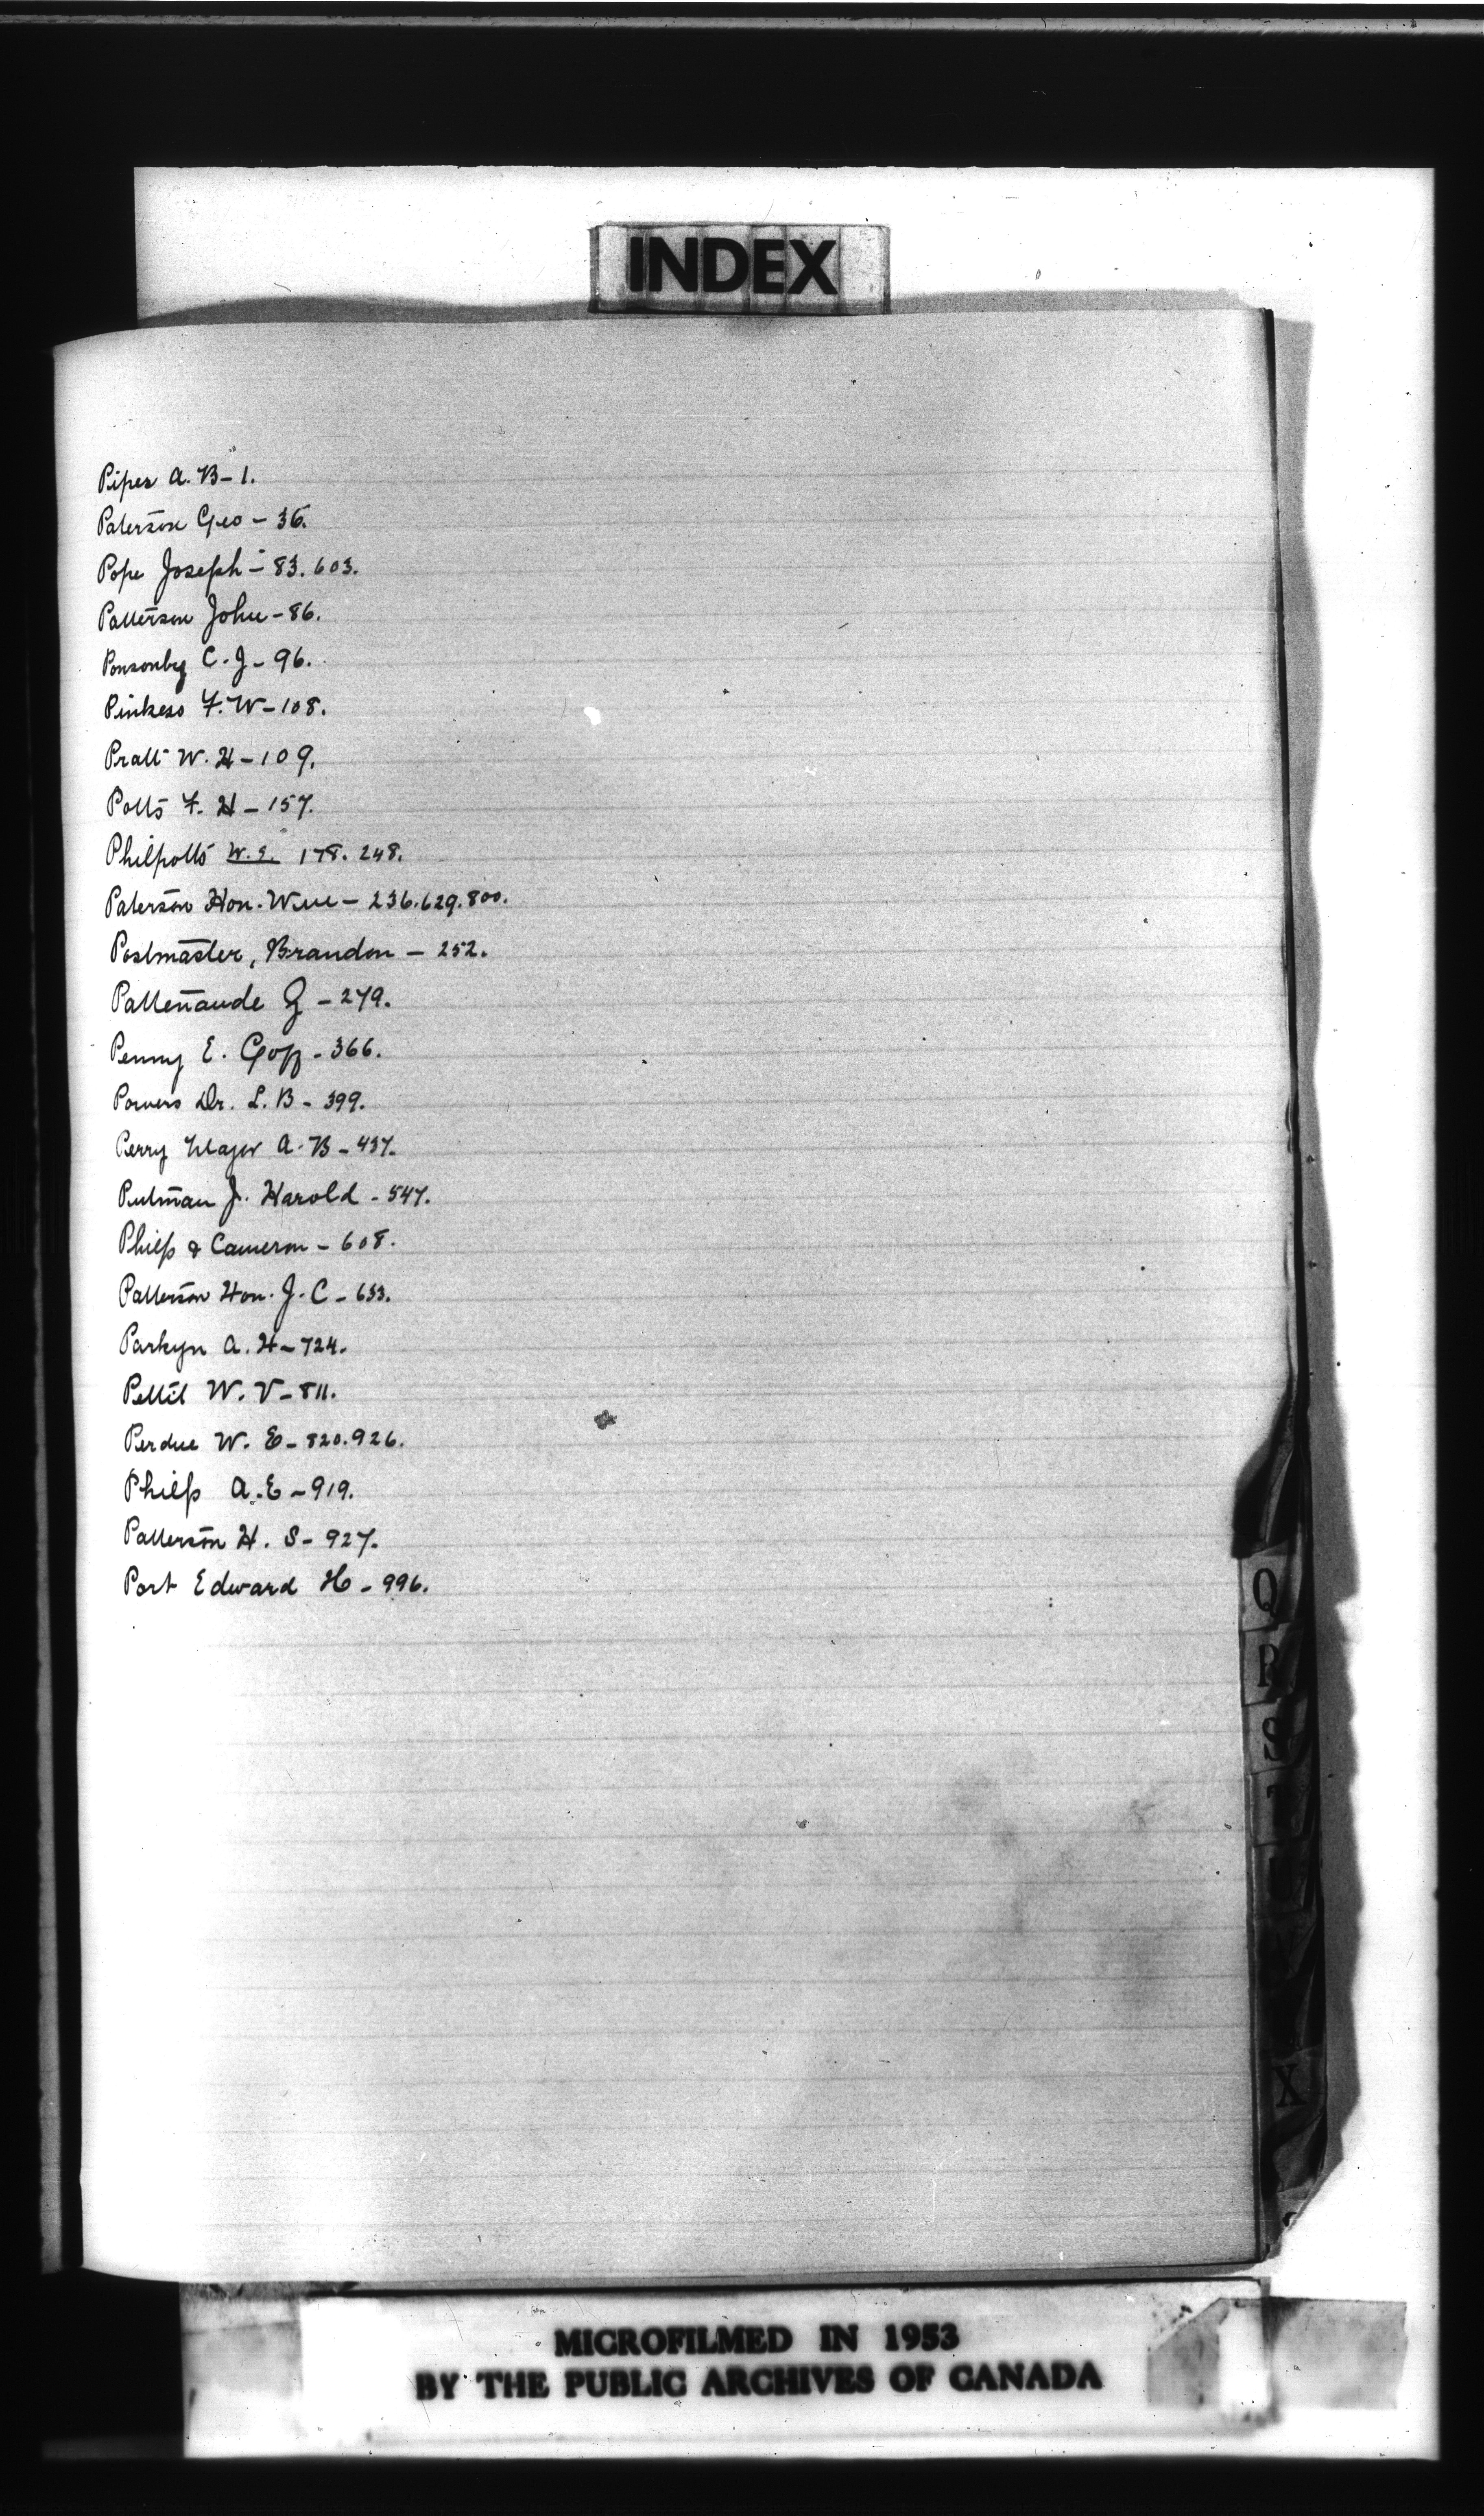 INDEX
Piper A. B - 1.
Paterson Geo - 36.
Pope Joseph - 83. 603.
Patterson John - 86.
Ponsonby C. J - 96.
F. W - 108.
Pratt W. H - 109.
Potts F. H - 157.
Philpotts W. E. 178. 248.
Paterson Hon. Wm - 236. 629. 800.
Postmaster, Brandon - 252.
Pattenaude G - 279.
Penny E. Goff - 366.
Powers Dr. L. B - 399.
Perry Major A. B - 437.
Putman J. Harold - 547.
Philp & Cameron - 608.
Patterson Hon. J. C - 633.
Parkyn A. H - 724.
Pettit W. V - 811.
Perdue W. E - 820. 926.
Philp A. E - 919.
Patterson H. S - 927.
Port Edward H - 996.
Q
R
S
T
U
V
X
MICROFILMED IN 1953
BY THE PUBLIC ARCHIVES OF CANADA